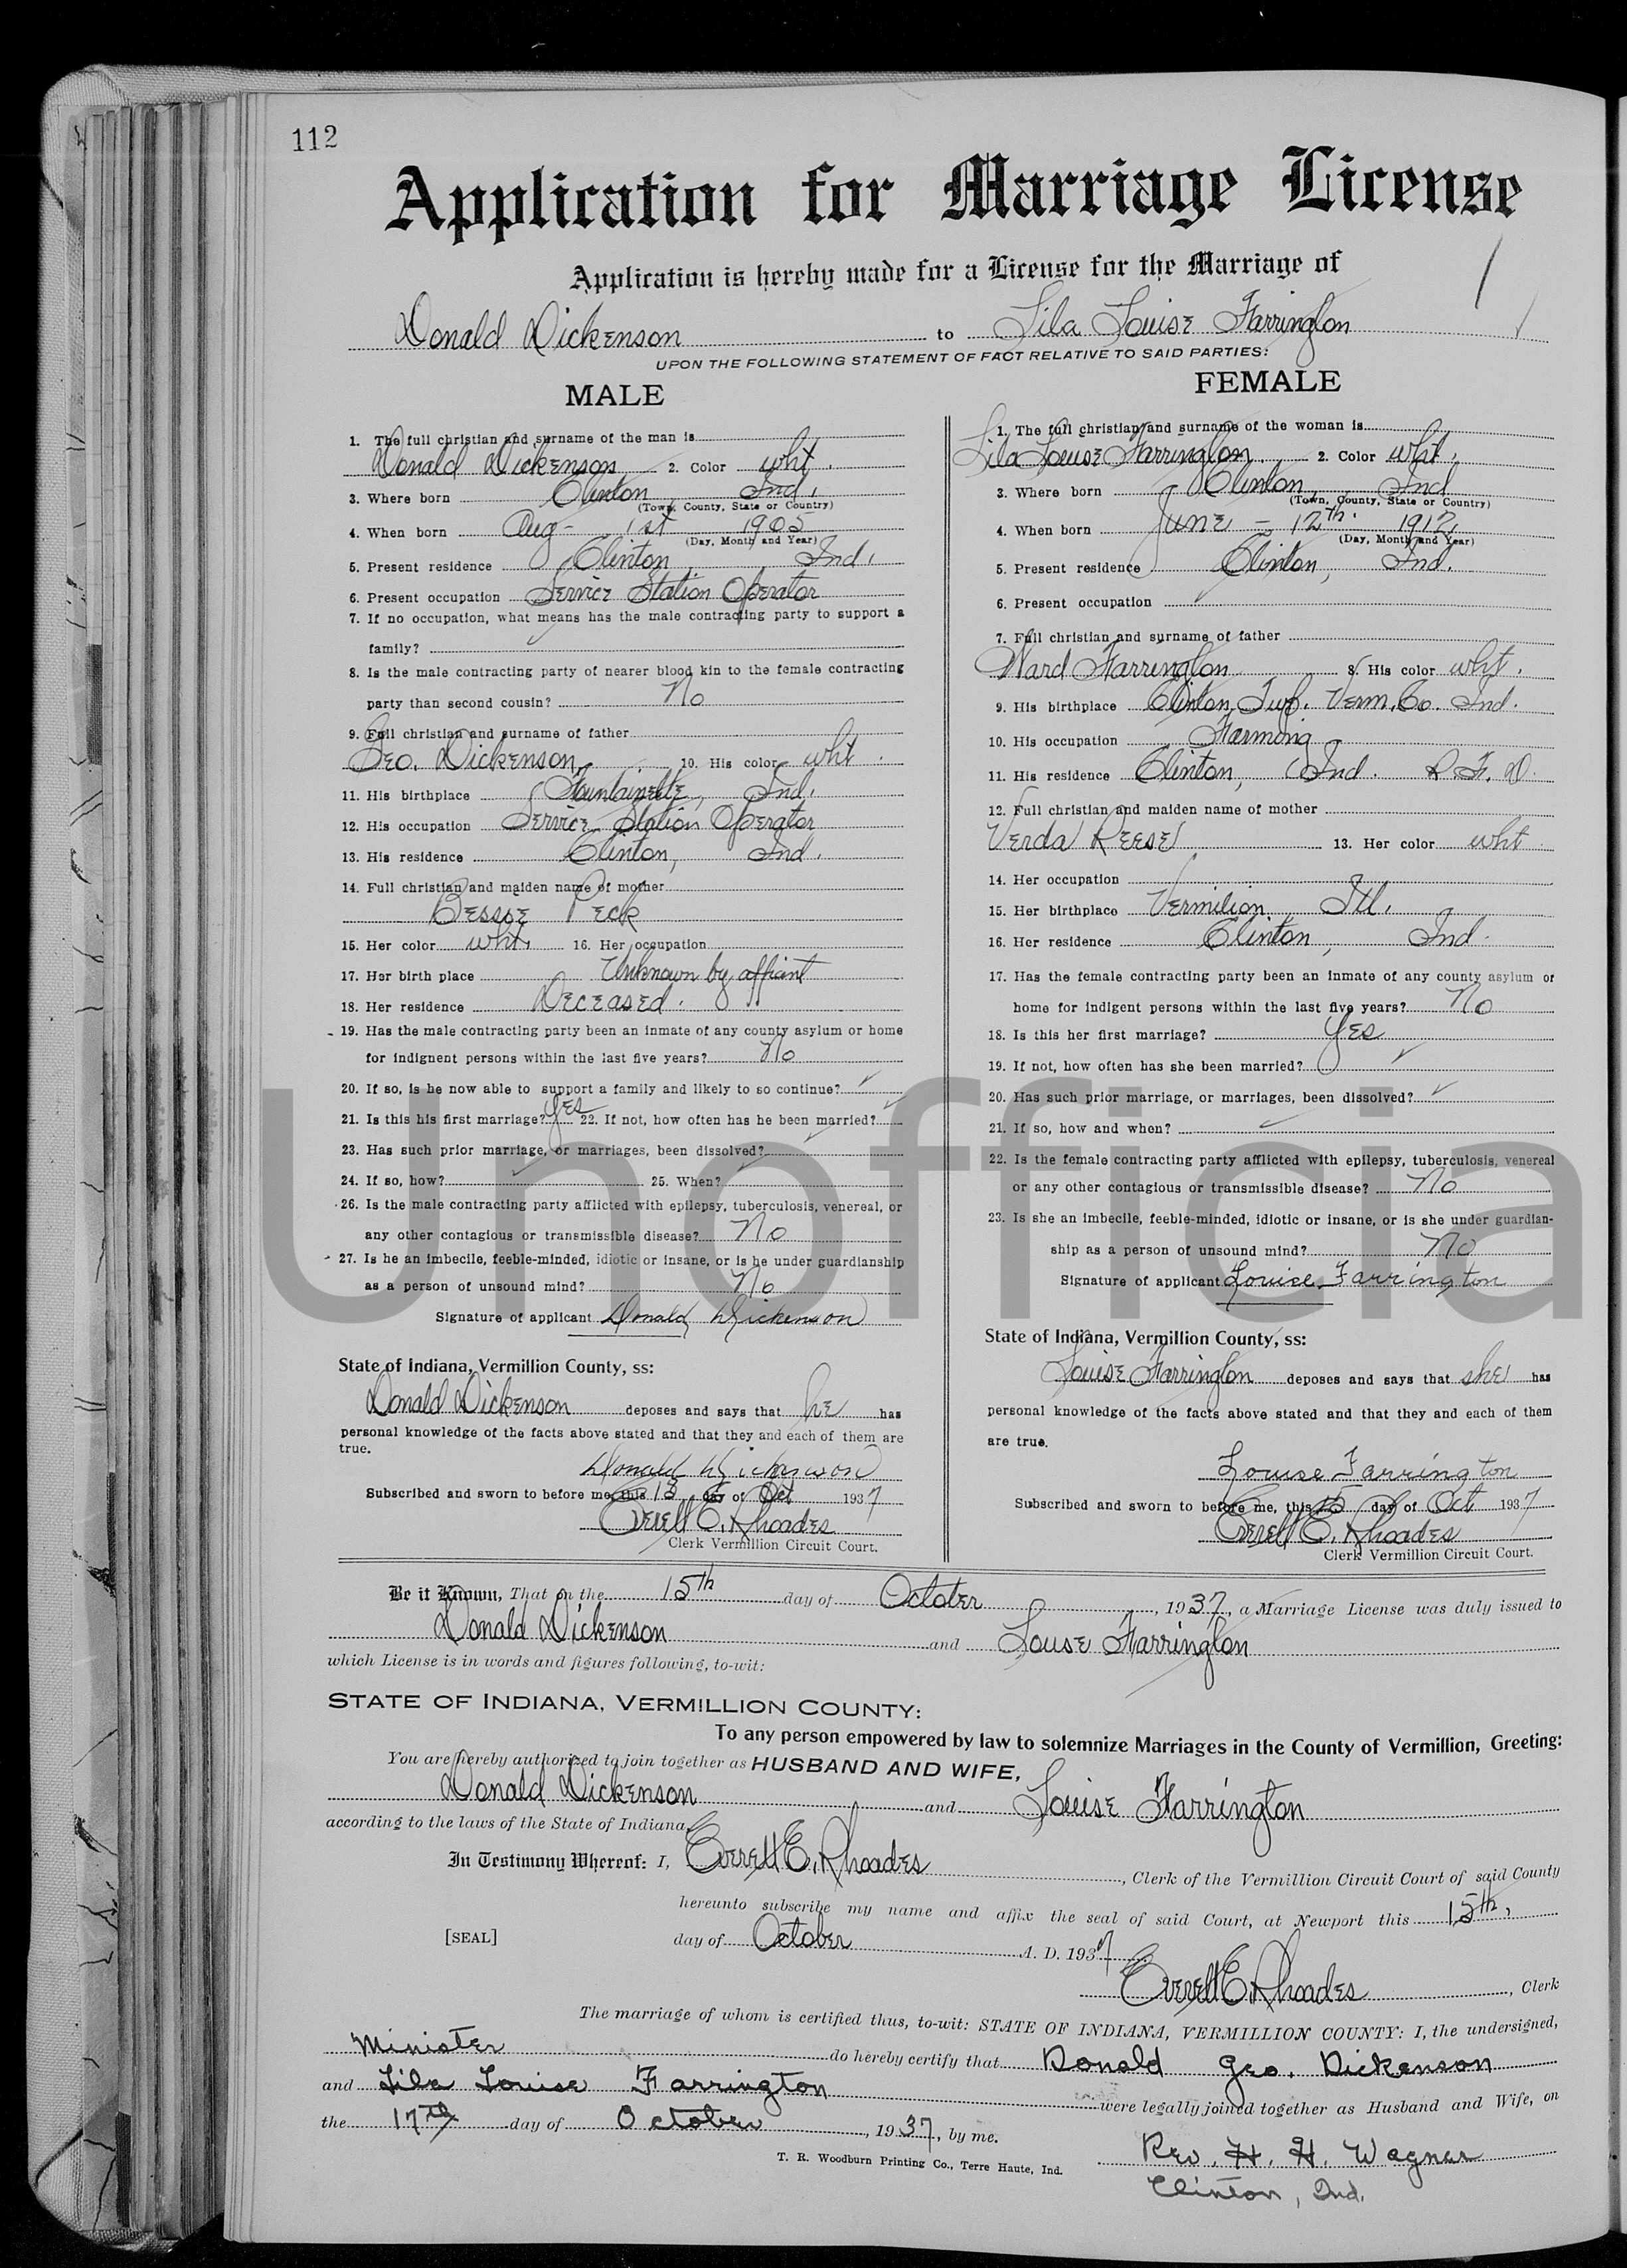 112
Application for Marriage License
Application is hereby made for a License for the Marriage of
Donald Dickenson to Lila Louise Farrington
UPON THE FOLLOWING STATEMENT OF FACT RELATIVE TO SAID PARTIES:
MALE
1. The full christian and surname of the man is
Donald Dickenson 2. Color wht.
3. Where born Clinton Ind.
(Town, County, State or Country)
4. When born Aug - 1st 1905
(Day, Month and Year)
5. Present residence Clinton, Ind.
6. Present occupation Service Station Operator
7. If no occupation, what means has the male contracting party to support a
family?
8. Is the male contracting party of nearer blood kin to the female contracting
party than second cousin? No
9. Full christian and surname of father
Geo. Dickenson 10. His color wht.
11. His birthplace Ind.
12. His occupation Service Station Operator
13. His residence Clinton, Ind.
14. Full christian and maiden name of mother
Bessie Peck
15. Her color wht. 16. Her occupation
17. Her birth place Unknown by affiant
18. Her residence Deceased.
19. Has the male contracting party been an inmate of any county asylum or home
for indignent persons within the last five years? No
20. If so, is he now able to support a family and likely to so continue?
21. Is this his first marriage? Yes 22. If not, how often has he been married?
23. Has such prior marriage, or marriages, been dissolved?
24. If so, how? 25. When?
26. Is the male contracting party afflicted with epilepsy, tuberculosis, venereal, or
any other contagious or transmissible disease? No
27. Is he an imbecile, feeble-minded, idiotic or insane, or is he under guardianship
as a person of unsound mind? No
Signature of applicant Donald Dickenson
State of Indiana, Vermillion County, ss:
Donald Dickenson deposes and says that he has
personal knowledge of the facts above stated and that they and each of them are
true.
Donald Dickenson
Subscribed and sworn to before me, this day of Oct 1937
Everett E. Rhoades
Clerk Vermillion Circuit Court.
FEMALE
1. The full christian and surname of the woman is
Lila Louise Farrington 2. Color wht.
3. Where born Clinton, Ind
(Town, County, State or Country)
4. When born June - 12th. 1912
(Day, Month and Year)
5. Present residence Clinton, Ind.
6. Present occupation
7. Full christian and surname of father
Ward Farrington 8. His color wht.
9. His birthplace Clinton Twp. Verm. Co. Ind.
10. His occupation Farming
11. His residence Clinton, Ind. R.F.D.
12. Full christian and maiden name of mother
Verda Reese 13. Her color wht.
14. Her occupation
15. Her birthplace Vermilion, Ill.
16. Her residence Clinton, Ind.
17. Has the female contracting party been an inmate of any county asylum or
home for indigent persons within the last five years? No
18. Is this her first marriage? Yes
19. If not, how often has she been married?
20. Has such prior marriage, or marriages, been dissolved?
21. If so, how and when?
22. Is the female contracting party afflicted with epilepsy, tuberculosis, venereal
or any other contagious or transmissible disease? No
23. Is she an imbecile, feeble-minded, idiotic or insane, or is she under guardian-
ship as a person of unsound mind? No
Signature of applicant Louise Farrington
State of Indiana, Vermillion County, ss:
Louise Farrington deposes and says that she has
personal knowledge of the facts above stated and that they and each of them
are true.
Louise Farrington
Subscribed and sworn to before me, this 15 day of Oct 1937
Everett E. Rhoades
Clerk Vermillion Circuit Court.
Be it Known, That on the 15th day of October, 1937, a Marriage License was duly issued to
Donald Dickenson and Louise Farrington
which License is in words and figures following, to-wit:
STATE OF INDIANA, VERMILLION COUNTY:
To any person empowered by law to solemnize Marriages in the County of Vermillion, Greeting:
You are hereby authorized to join together as HUSBAND AND WIFE,
Donald Dickenson and Louise Farrington
according to the laws of the State of Indiana.
In Testimony Whereof: I, Everett E. Rhoades, Clerk of the Vermillion Circuit Court of said County
hereunto subscribe my name and affix the seal of said Court, at Newport this 15th,
[SEAL] day of October A. D. 1937
Everett E. Rhoades, Clerk
The marriage of whom is certified thus, to-wit: STATE OF INDIANA, VERMILLION COUNTY: I, the undersigned,
Minister do hereby certify that Donald Geo. Dickenson
and Lila Louise Farrington were legally joined together as Husband and Wife, on
the 17th day of October, 1937, by me.
T. R. Woodburn Printing Co., Terre Haute, Ind.
Rev. H. H. Wagner
Clinton, Ind.
Unofficial